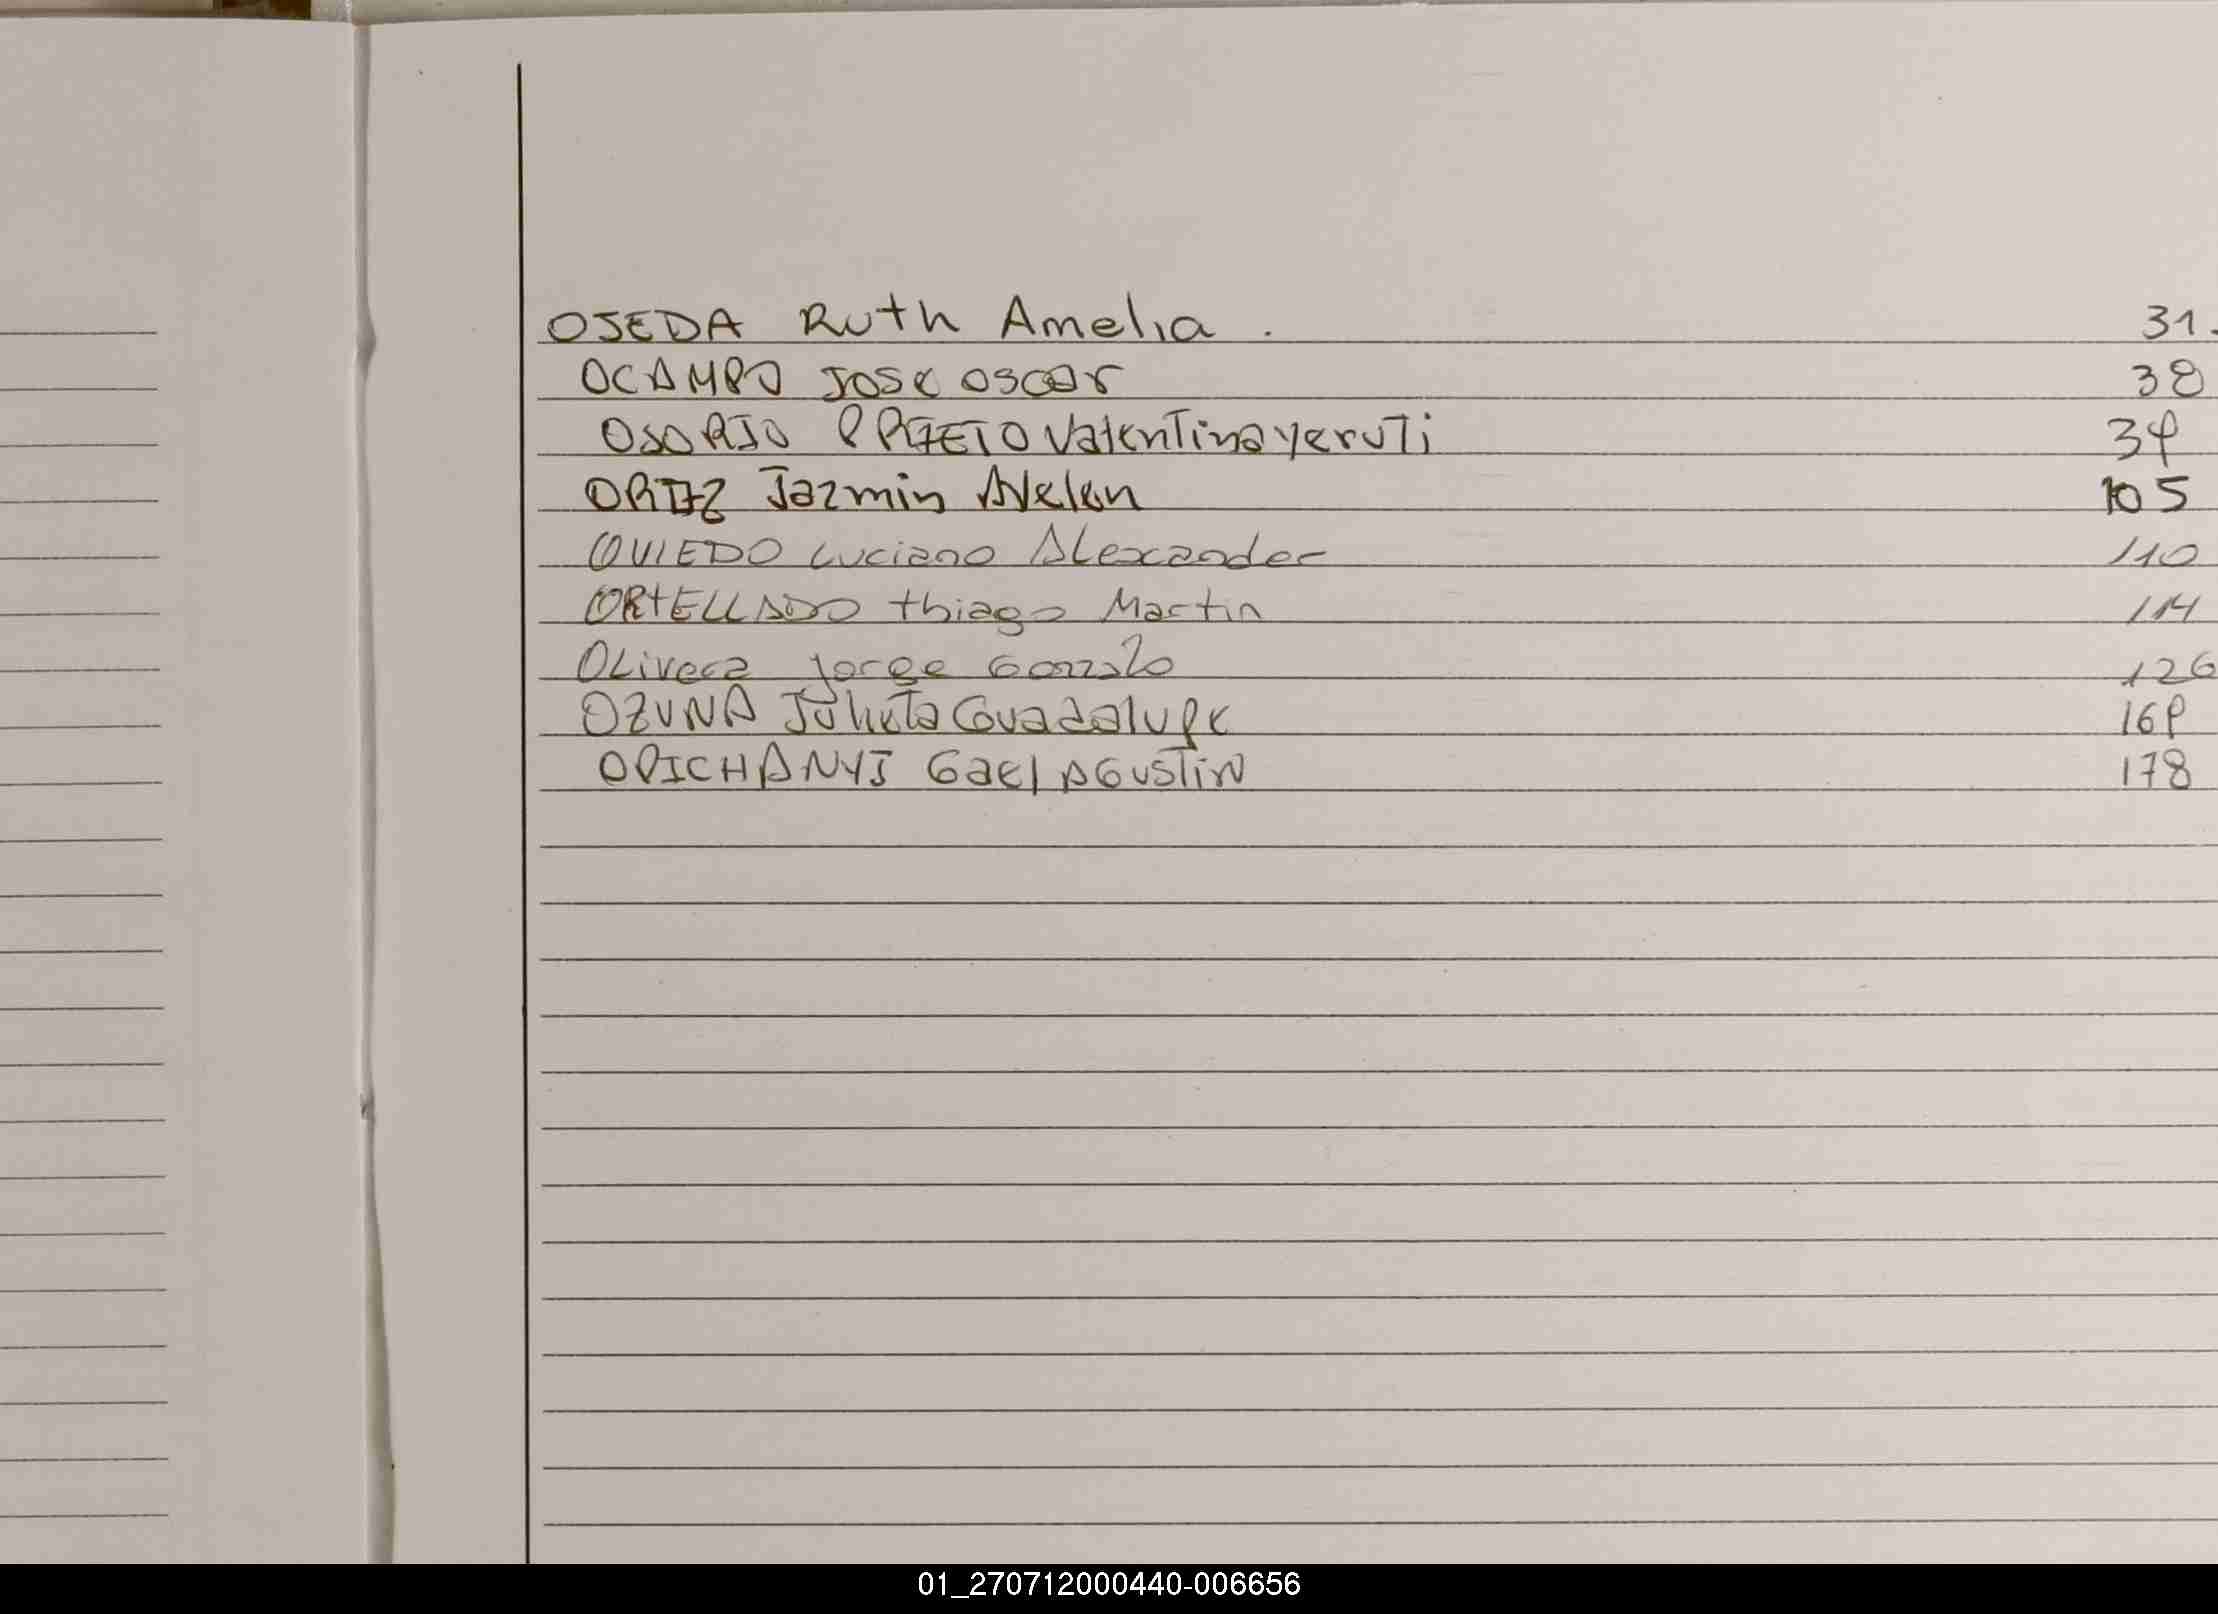 OJEDA Ruth Amelia . 31.
OCAMPO Jose oscar 38
OSORIO PRIETO Valentina yeruti 39
ORTIZ Jazmin Ayelen 105
OVIEDO Luciano Alexander 110
ORTELLADO thiago Martin 114
OLivera Jorge Gonzalo 126
OZUNA Julieta Guadalupe 169
OPICHANYI Gael AGUSTIN 178
01_270712000440-006656